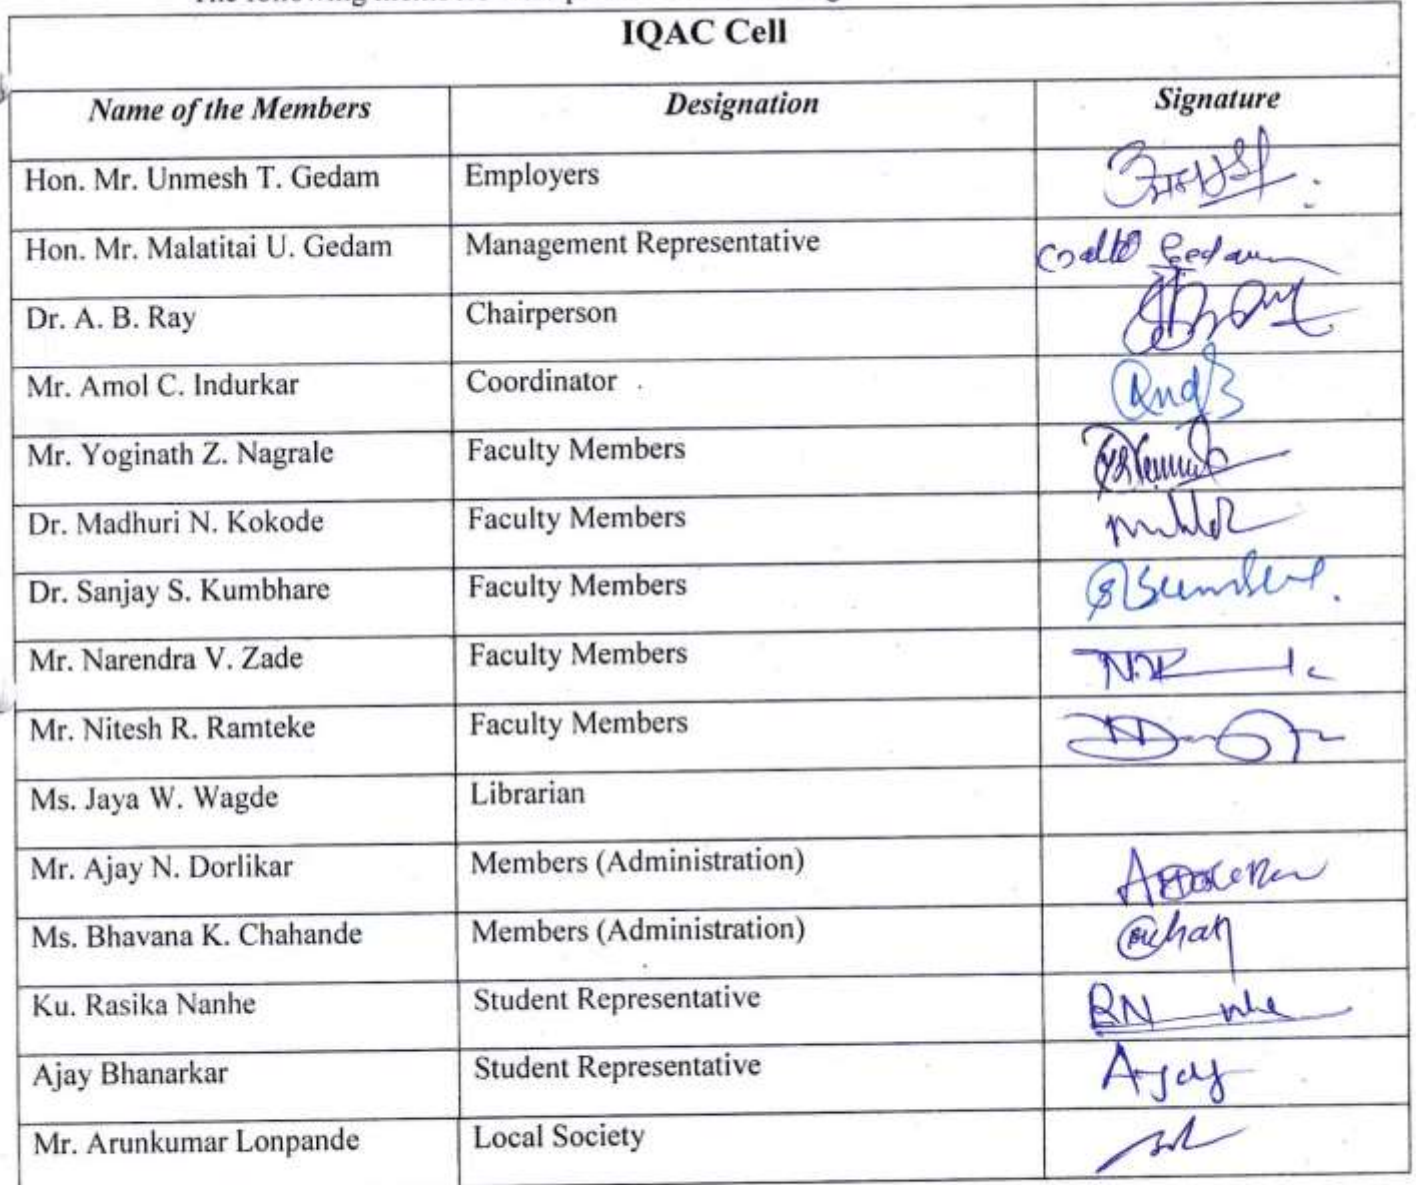 IQAC Cell
Name of the Members Designation Signature
Hon. Mr. Unmesh T. Gedam Employers
Hon. Mr. Malatitai U. Gedam Management Representative Gedam
Dr. A. B. Ray Chairperson
Mr. Amol C. Indurkar Coordinator
Mr. Yoginath Z. Nagrale Faculty Members
Dr. Madhuri N. Kokode Faculty Members
Dr. Sanjay S. Kumbhare Faculty Members
Mr. Narendra V. Zade Faculty Members
Mr. Nitesh R. Ramteke Faculty Members
Ms. Jaya W. Wagde Librarian
Mr. Ajay N. Dorlikar Members (Administration)
Ms. Bhavana K. Chahande Members (Administration)
Ku. Rasika Nanhe Student Representative
Ajay Bhanarkar Student Representative Ajay
Mr. Arunkumar Lonpande Local Society